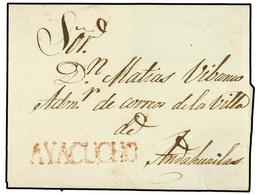 Sor.d
Dn Matias Vibanco
Admr de correos de la Villa
de
Andahuailas
AYACUCHO